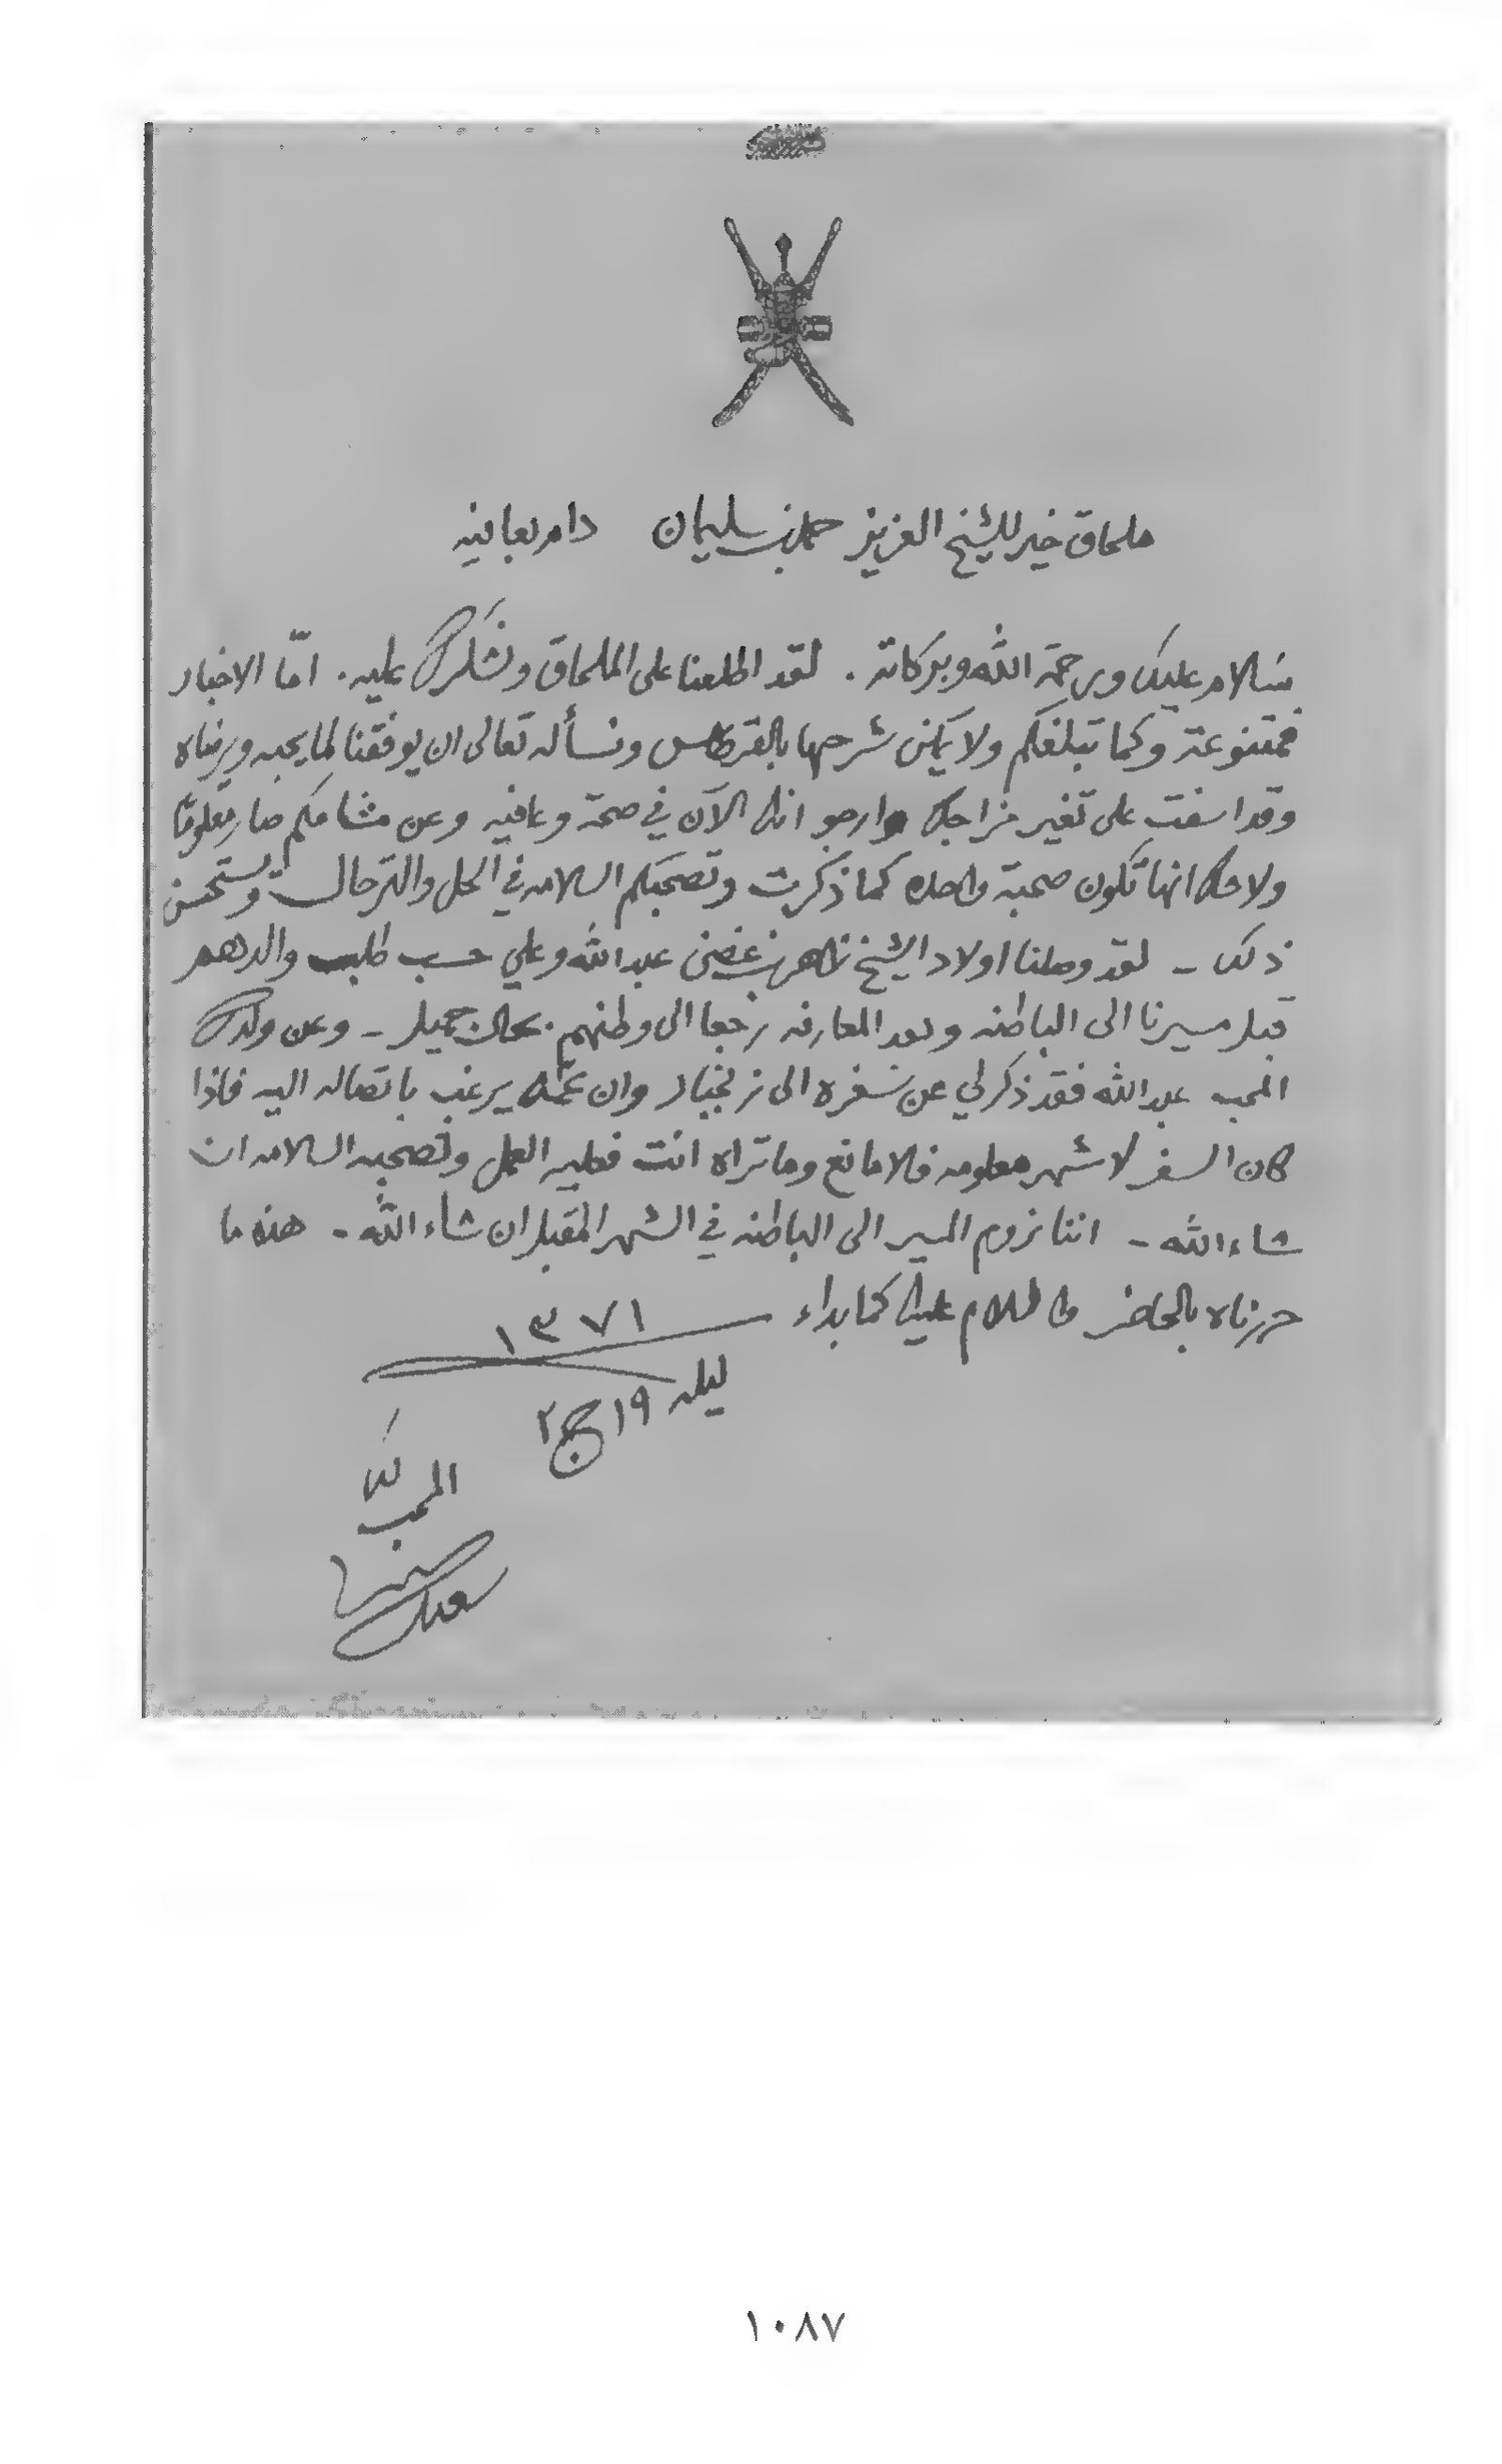 ملحاق خير للشيخ العزيز حمد بن سليمان دام بعافيه
سلام عليك ورحمة الله وبركاته . لقد اطلعنا على الملحاق ونشكرك عليه . امّا الاخبار
فمتنوعة وكما تبلغكم ولا يمكن شرحها بالقرطاس ونسأله تعالى ان يوفقنا لما يحبه ويرضاه
وقد اسفت على تغير مزاجك وارجو انك الآن في صحة وعافيه وعن مشاكم صار معلومًا
ولا شك انها تكون صحبة واحده كما ذكرت وتصحبكم السلامه في الحل والترحال ونستحسن
ذلك - لقد وصلنا اولاد الشيخ ظاهر بن غصن عبدالله وعلي حسب طلب والدهم
قبل مسيرنا الى الباطنه وبعد المعارفه رجعا الى وطنهم بحال جميل - وعن ولدك
المحب عبدالله فقد ذكر لي عن سفره الى زنجبار وان عمّه يرغب باتصاله اليه فاذا
كان السفر لاشهر معلومه فلا مانع وما تراه انت فعليه العمل وتصحبه السلامه ان
شاء الله - اننا نروم المسير الى الباطنه في الشهر المقبل ان شاء الله - هذه ما
حررناه بالحاضر والسلام عليك كما بداء ١٣٧١
ليله ١٩ ج ٢
المحب لك
سعيد
١٠٨٧